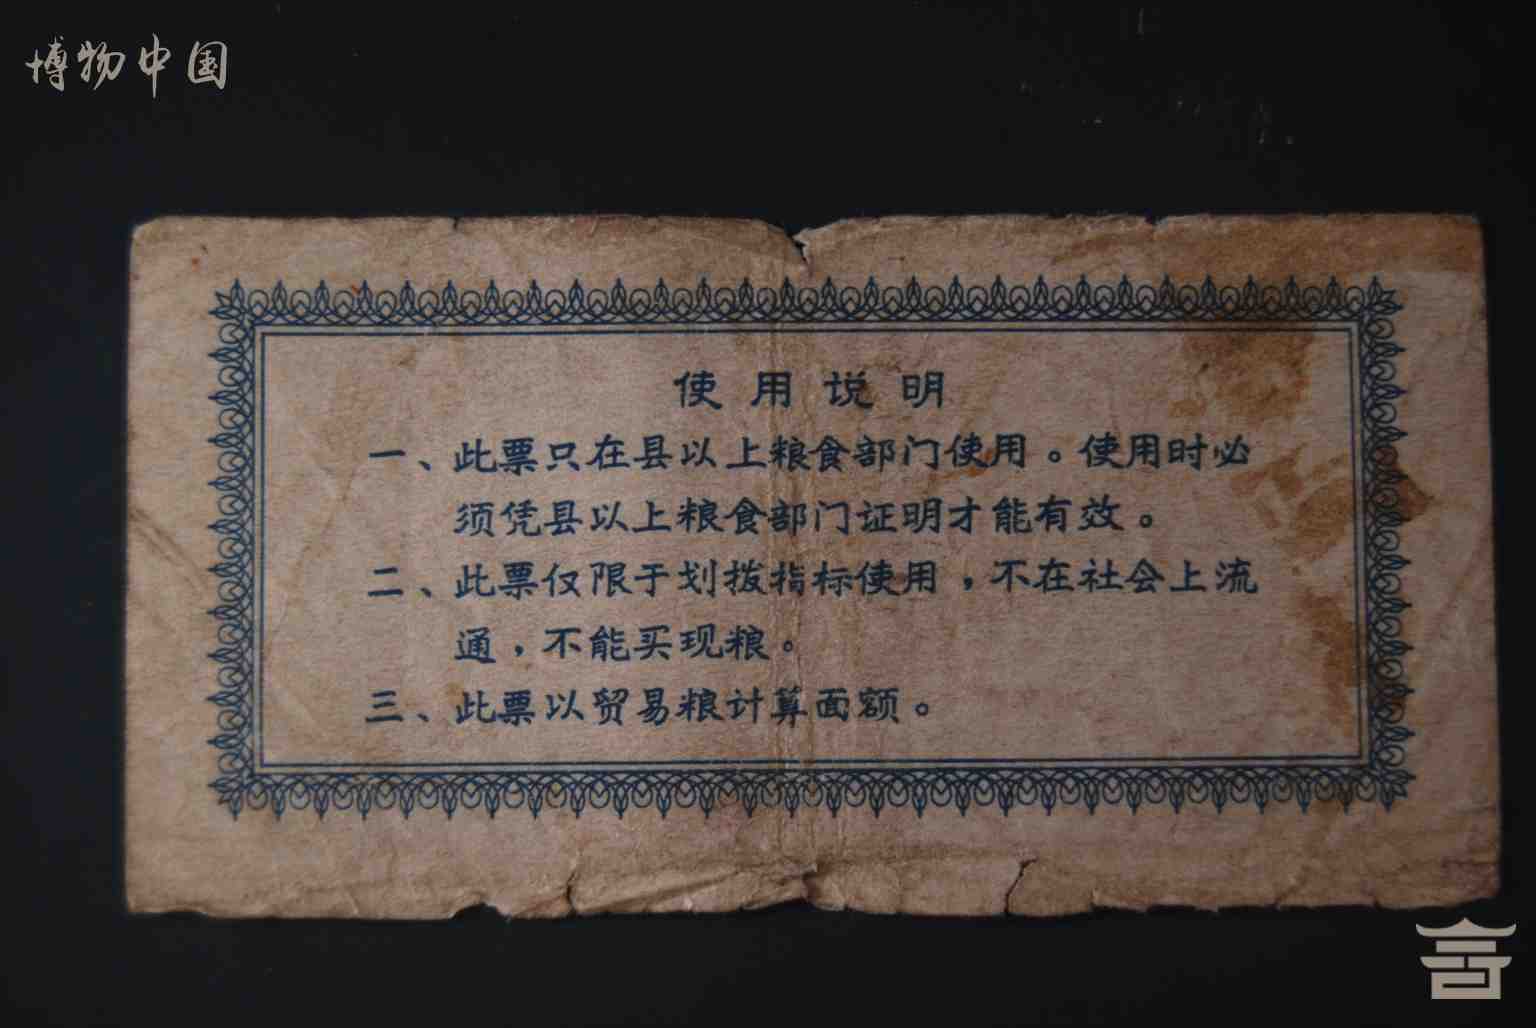 博物中国
使用说明
一、此票只在县以上粮食部门使用。使用时必
须凭县以上粮食部门证明才能有效。
二、此票仅限于划拨指标使用，不在社会上流
通，不能买现粮。
三、此票以贸易粮计算面额。